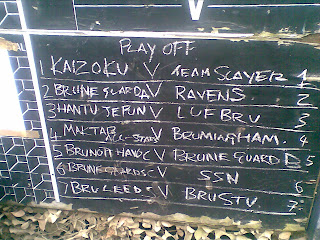 V
PLAY OFF
1 KAIZOKU V TEAM SLAYER 1
2 BRUNE GUARDA V RAVENS 2
3 HANTU JEPUN V LUFBRU 3
4 MKTAB ALL-STARS V BRUMINGHAM. 4
5 V BRUNE GUARD B 5
6 BRUNE GUARDS C V SSN 6
7 BRU LEEDS V BRUSTU 7